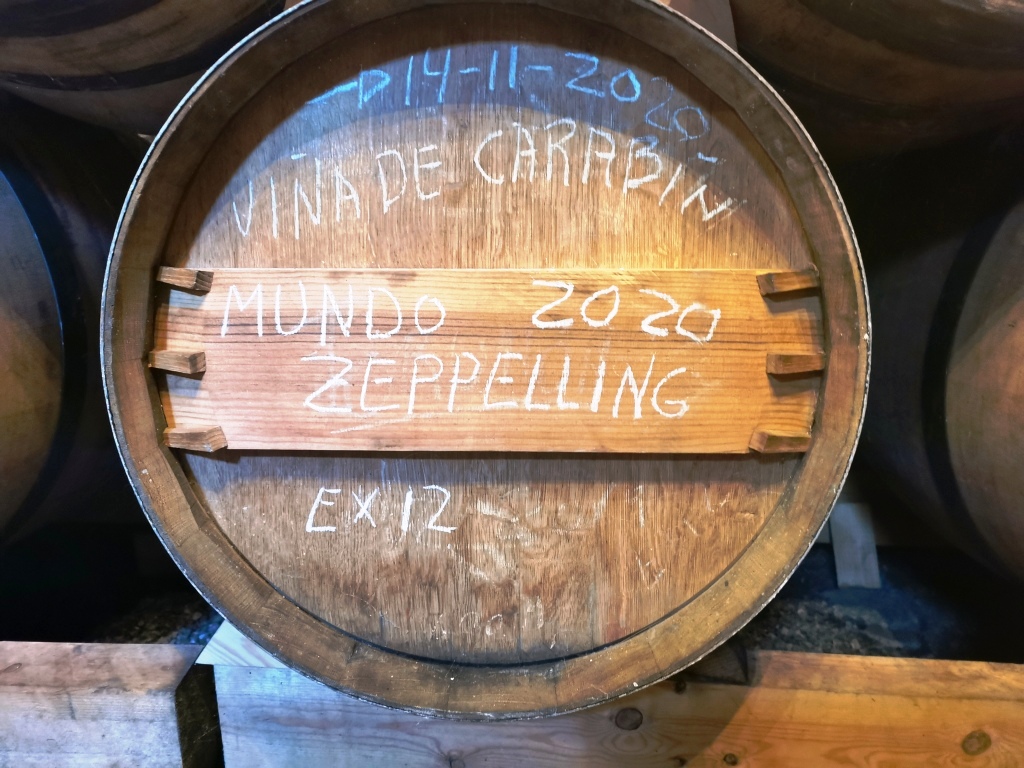 →14-11-2020
VIÑA DE CARABIÑ
MUNDO 2020
ZEPPELLING
EX12